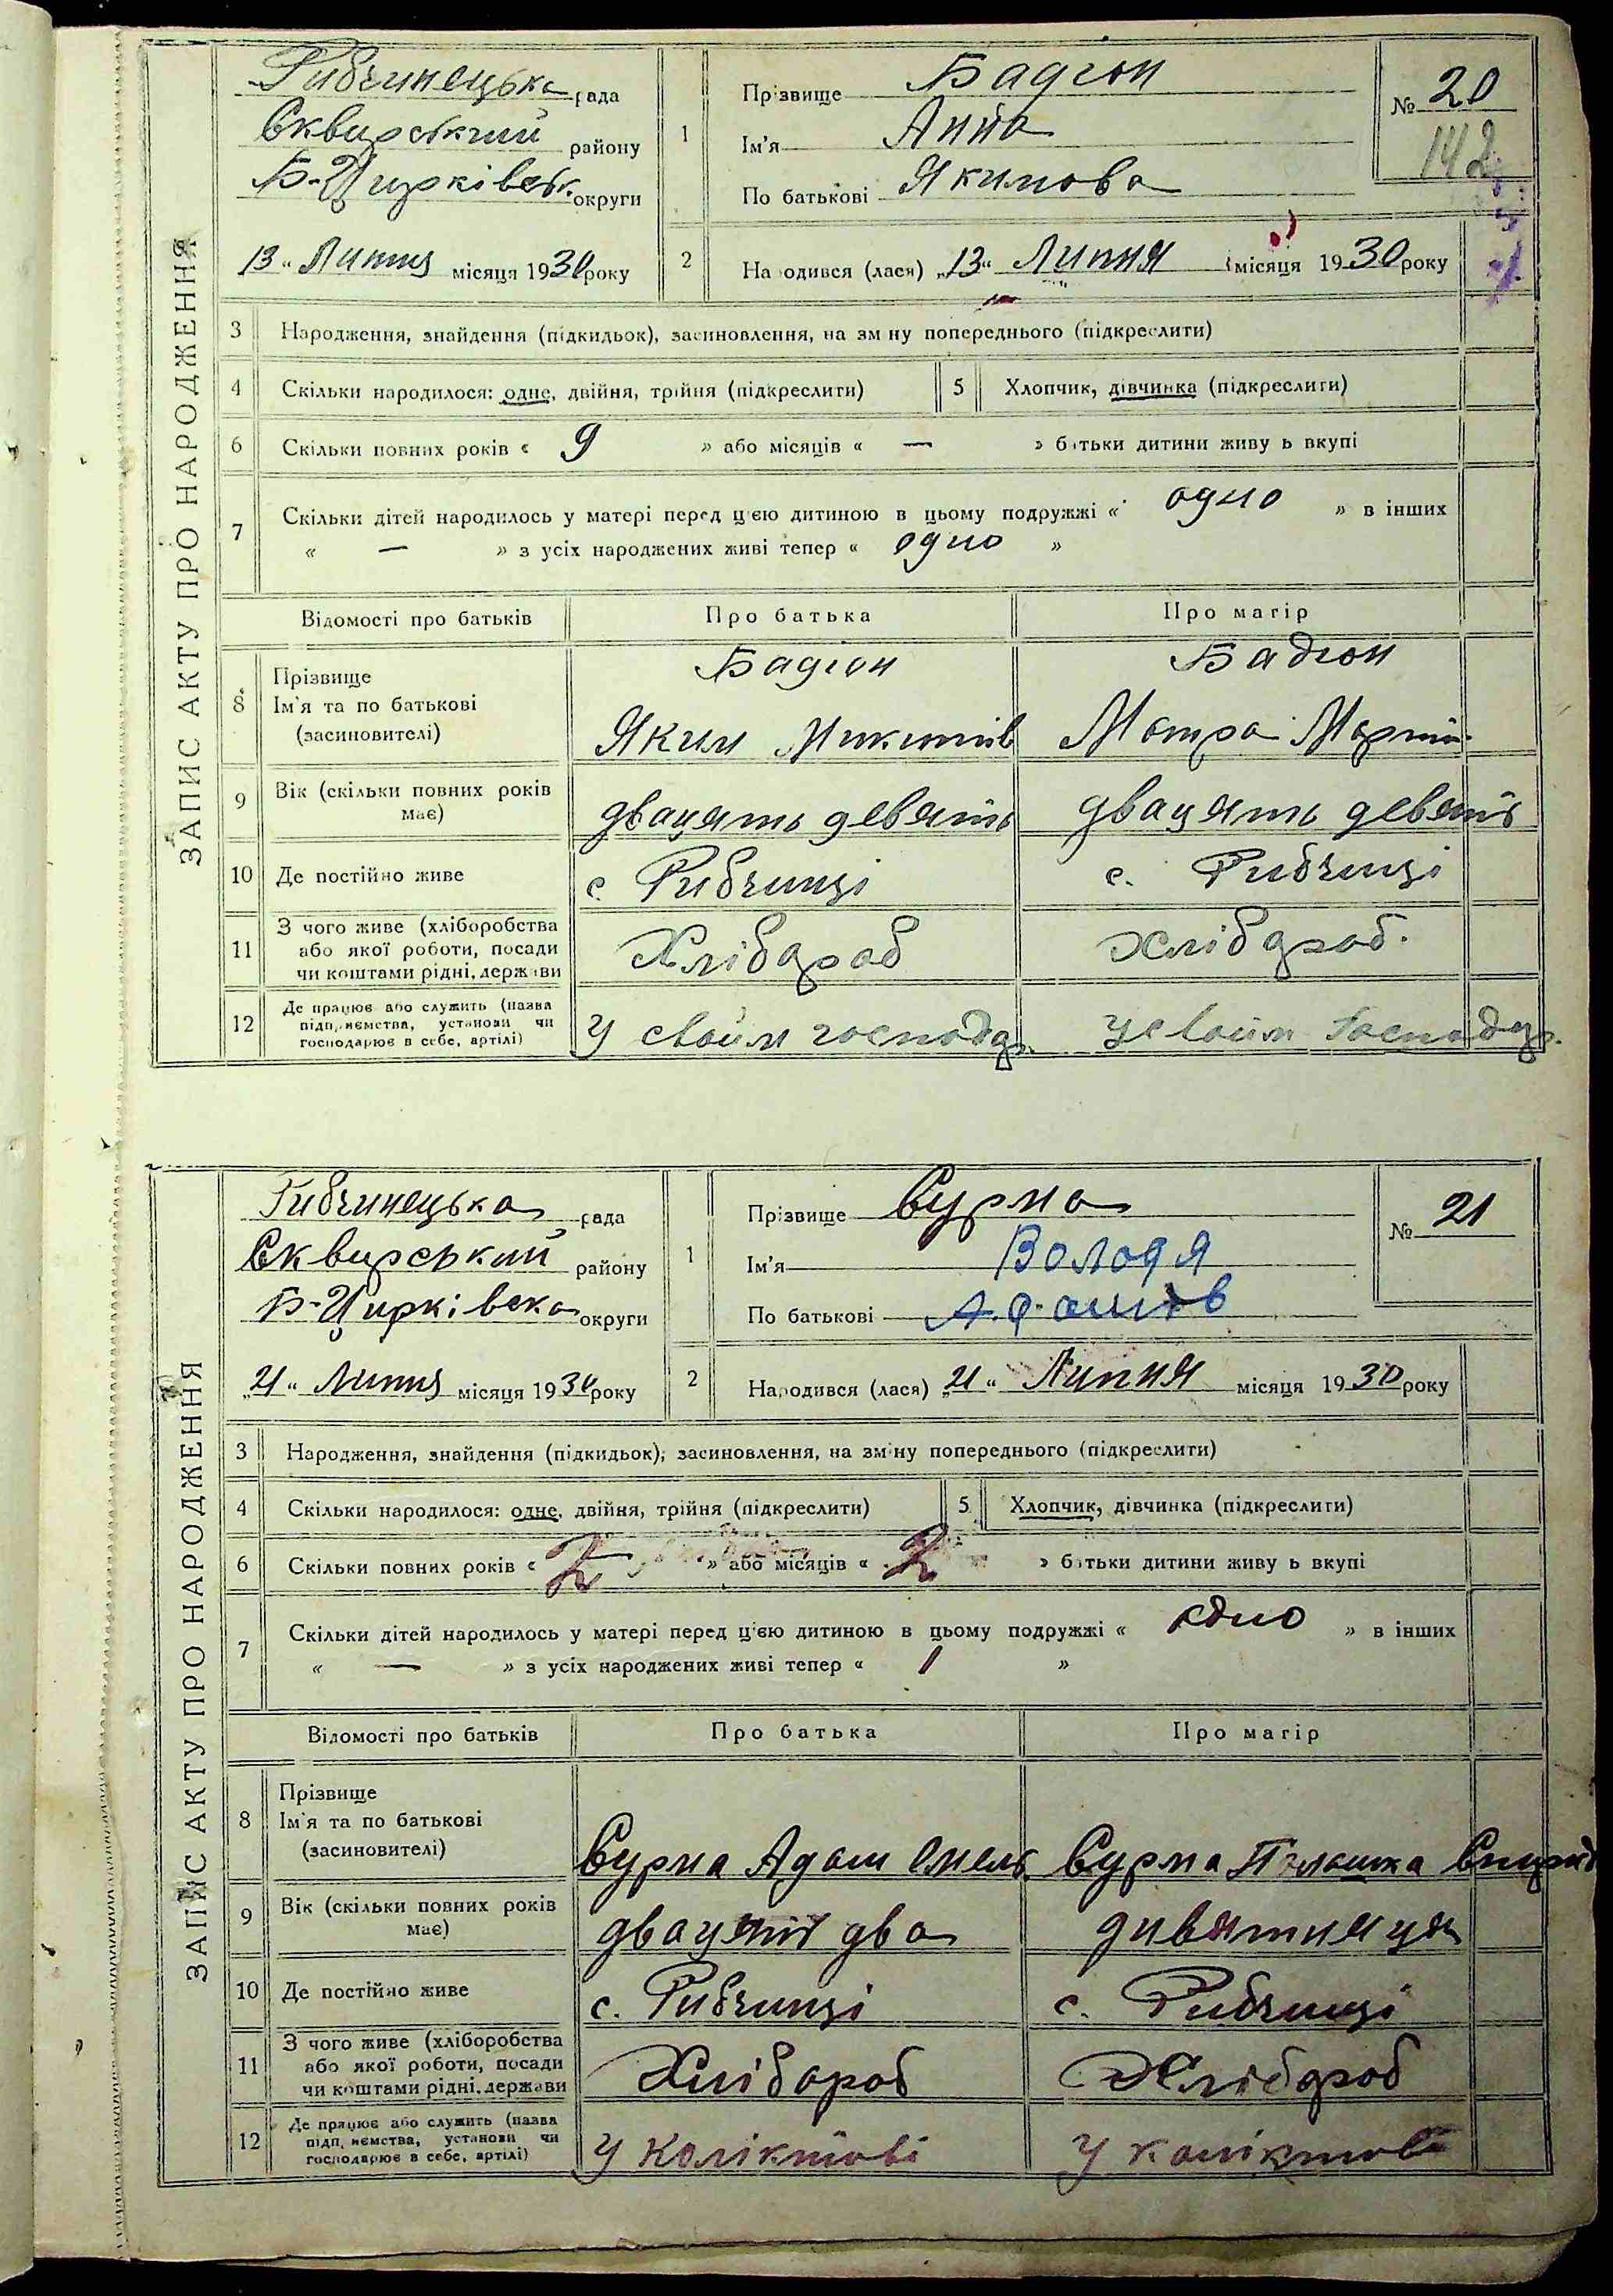 ЗАПИС АКТУ ПРО НАРОДЖЕННЯ
Рибчинецька рада
Сквирський району
Б-Цирківськ. округи
13 " Липня місяця 1930 року
1
Прізвище Бадюн
Ім'я Анна
По батькові Якимова
№ 20
142
2
Народився (лася) „13" Липня місяця 1930 року
3 Народження, знайдення (підкидьок), засиновлення, на зміну попереднього (підкреслити)
4 Скільки народилося: одне, двійня, трійня (підкреслити)
5 Хлопчик, дівчинка (підкреслити)
6 Скільки повних років « 9 » або місяців « — » батьки дитини живуть вкупі
7 Скільки дітей народилось у матері перед цією дитиною в цьому подружжі « одно » в інших
« — » з усіх народжених живі тепер « одно »
Відомості про батьків Про батька Про матір
8 Прізвище Бадюн Бадюн
Ім'я та по батькові
(засиновителі) Яким Микитів Мотра
9 Вік (скільки повних років має) двацять девять двацять девять
10 Де постійно живе с. Рибчинці с. Рибчинці
11 З чого живе (хліборобства
або якої роботи, посади
чи коштами рідні, держави Хлібороб хлібороб.
12 Де працює або служить (назва
підприємства, установи чи
господарює в себе, артілі) У своїм господар. У своїм господар.
ЗАПИС АКТУ ПРО НАРОДЖЕННЯ
Рибчинецька рада
Сквирський району
Б-Цирківска округи
„21" Липня місяця 1930 року
1
Прізвище Сурма
Ім'я Володя
По батькові
№ 21
2
Народився (лася) „21" Липня місяця 1930 року
3 Народження, знайдення (підкидьок), засиновлення, на зміну попереднього (підкреслити)
4 Скільки народилося: одне, двійня, трійня (підкреслити)
5 Хлопчик, дівчинка (підкреслити)
6 Скільки повних років « 2 » або місяців « 2 » батьки дитини живуть вкупі
7 Скільки дітей народилось у матері перед цією дитиною в цьому подружжі « одно » в інших
« — » з усіх народжених живі тепер « 1 »
Відомості про батьків Про батька Про матір
8 Прізвище
Ім'я та по батькові
(засиновителі) Сурма Адам Омель. Сурма Палашка
9 Вік (скільки повних років має) двацять два дивятнацять
10 Де постійно живе с. Рибчинці с. Рибчинці
11 З чого живе (хліборобства
або якої роботи, посади
чи коштами рідні, держави Хлібороб Хлібороб
12 Де працює або служить (назва
підприємства, установи чи
господарює в себе, артілі) У коліктові У коліктові